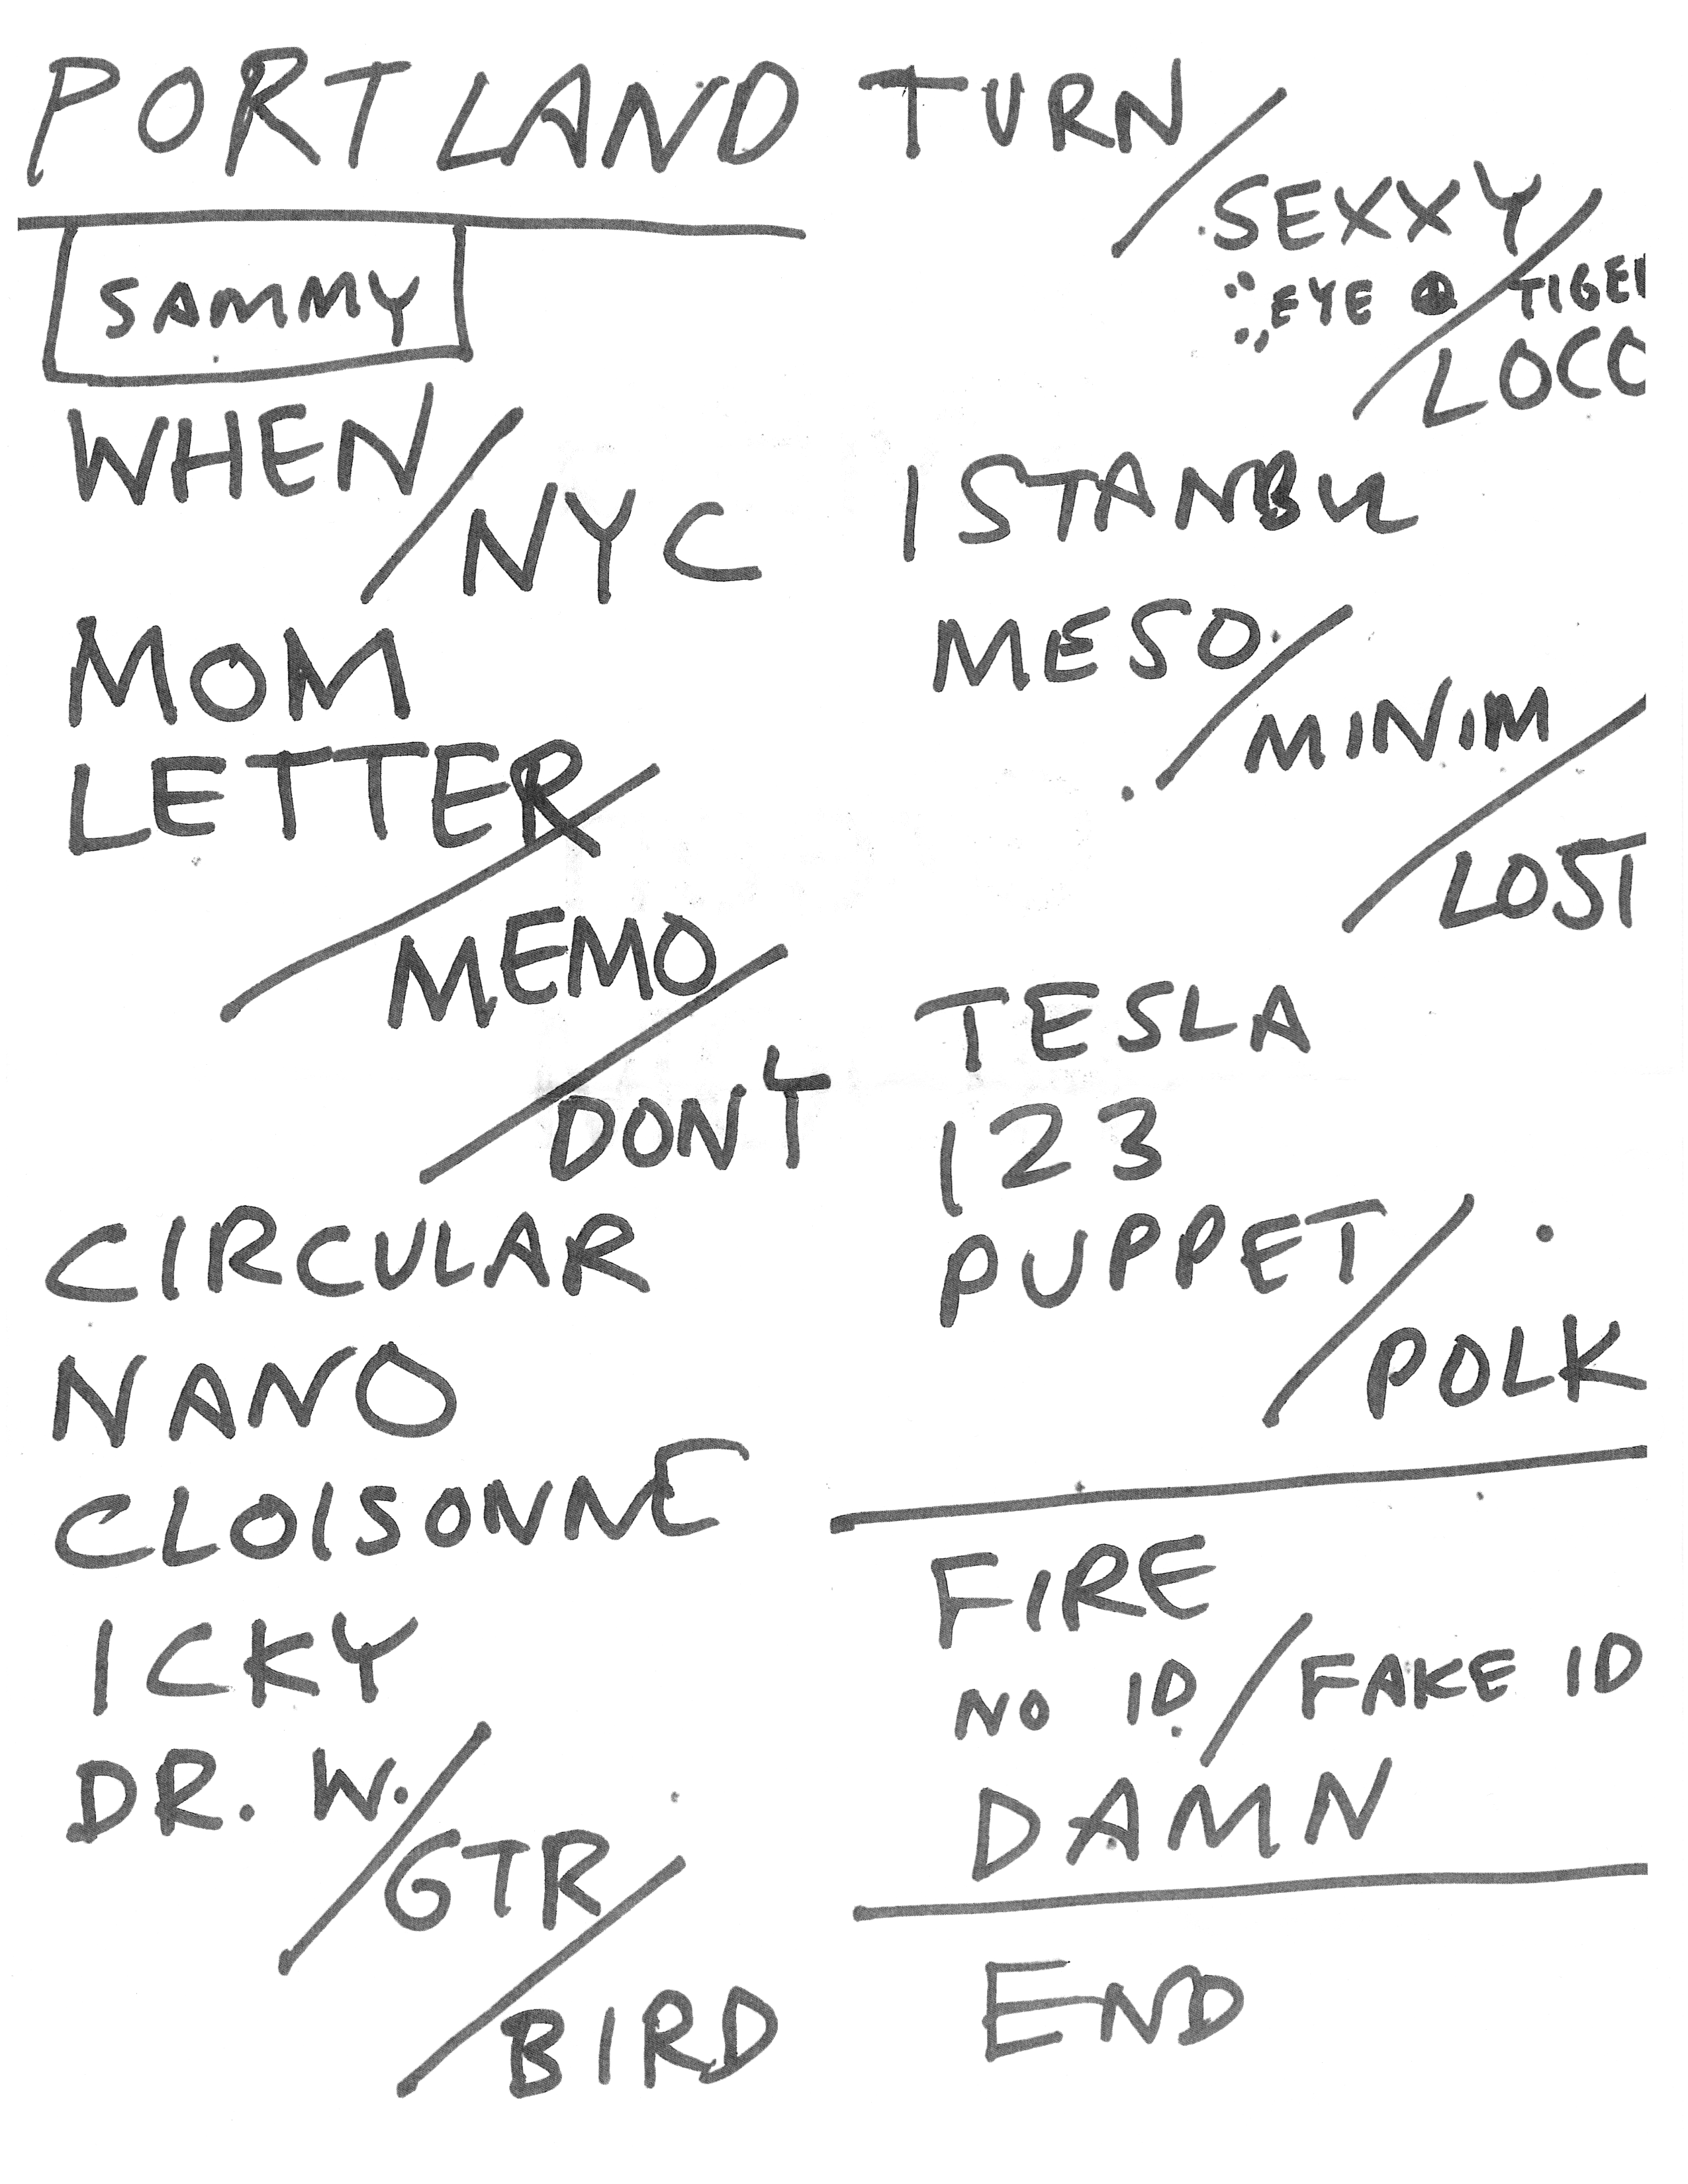 PORTLAND
SAMMY
WHEN/
NYC
MOM
LETTER/
MEMO/
DON'T
CIRCULAR
NANO
CLOISONNE
ICKY
DR. W./
GTR/
BIRD
TURN/
SEXXY/
EYE TIGER
LOCO
ISTANBUL
MESO/
MINIM/
LOST
TESLA
123
PUPPET/
POLK
FIRE
NO ID/FAKE ID
DAMN
END